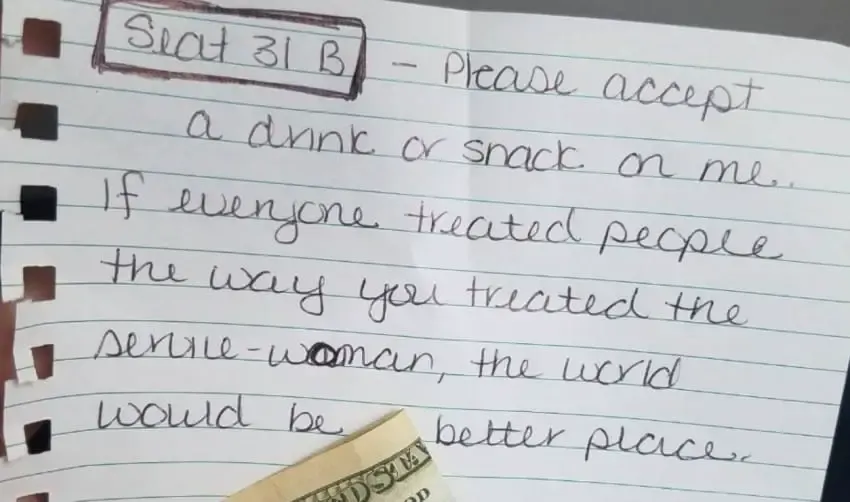 Seat 31 B - Please accept
a drink or snack on me.
If everyone treated people
the way you treated the
service-woman, the world
would be better place.